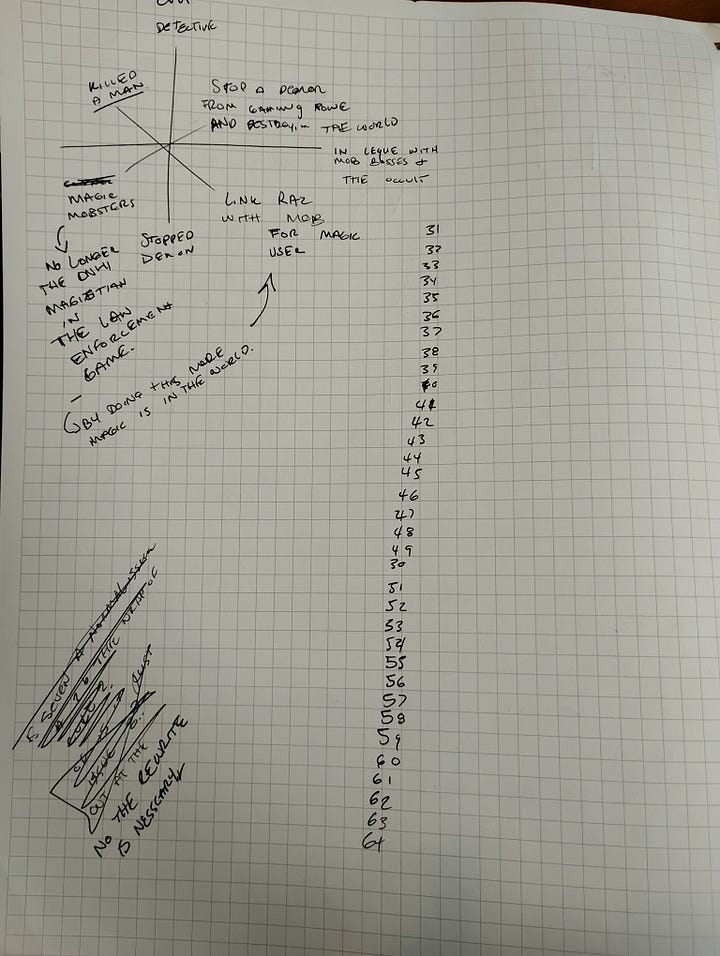 DETECTIVE
KILLED
A MAN.
STOP A DEMON
FROM GAINING POWE
AND DESTROYIN THE WORLD
IN LEGUE WITH
MOB BOSSES &
THE OCCULT
MAGIC
MOBSTERS
LINK RAZ
WITH MOB
FOR MAGIC
USER
STOPPED
DEMON
NO LONGER
THE ONLY
MAGIZTIAN
IN
THE LAW
ENFORCEMENT
GAME.
BY DOING THIS MORE
MAGIC IS IN THE WORLD.
31
32
33
34
35
36
37
38
39
40
41
42
43
44
45
46
47
48
49
30
51
52
53
54
55
56
57
58
59
60
61
62
63
64
IS SEVEN A NORMAL
OUT AT THE
NO THE REWRITE
IS NESSCARY